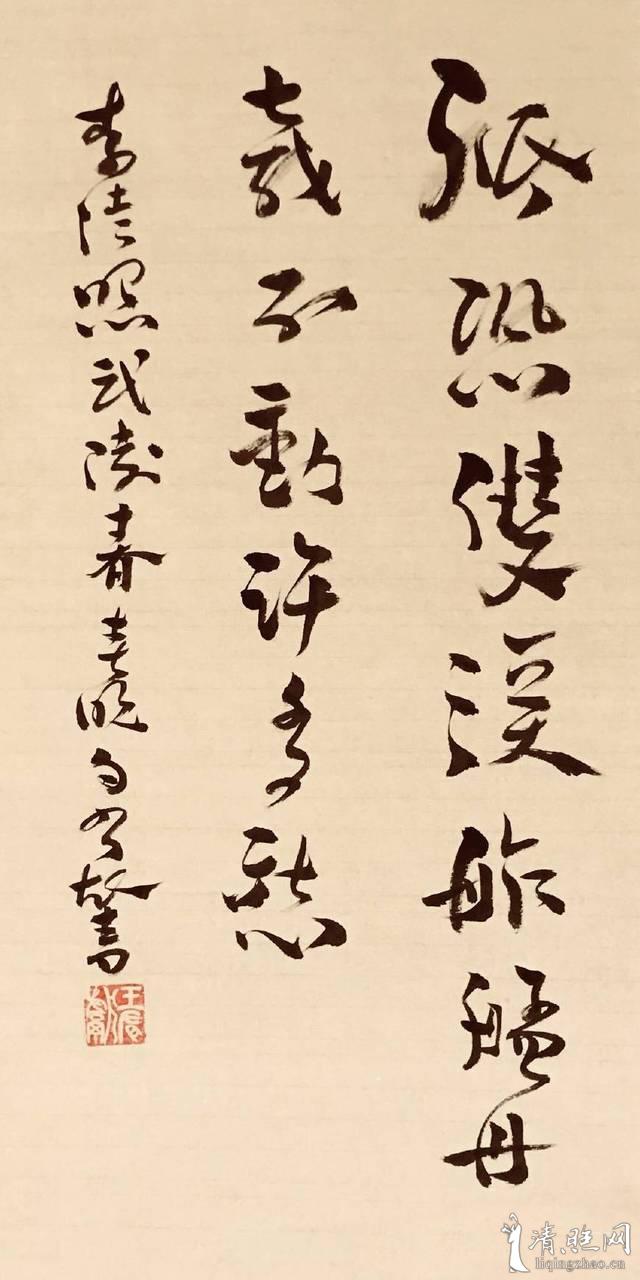 祇恐雙溪舴艋舟
載不動許多愁
李清照武陵春春晚句
清照网
liqingzhao.cn